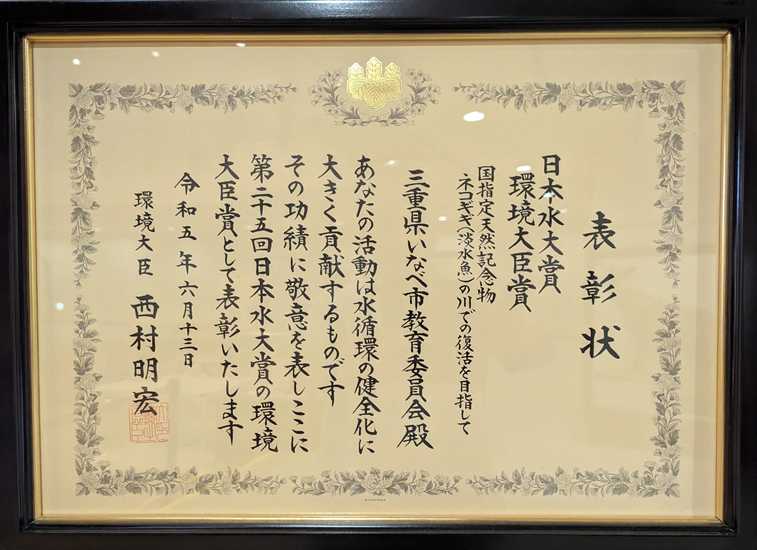 表彰状
日本水大賞
環境大臣賞
国指定天然記念物
ネコギギ(淡水魚)の川での復活を目指して
三重県いなべ市教育委員会殿
あなたの活動は水循環の健全化に
大きく貢献するものです
その功績に敬意を表しここに
第二十五回日本水大賞の環境
大臣賞として表彰いたします
令和五年六月十三日
環境大臣 西村明宏